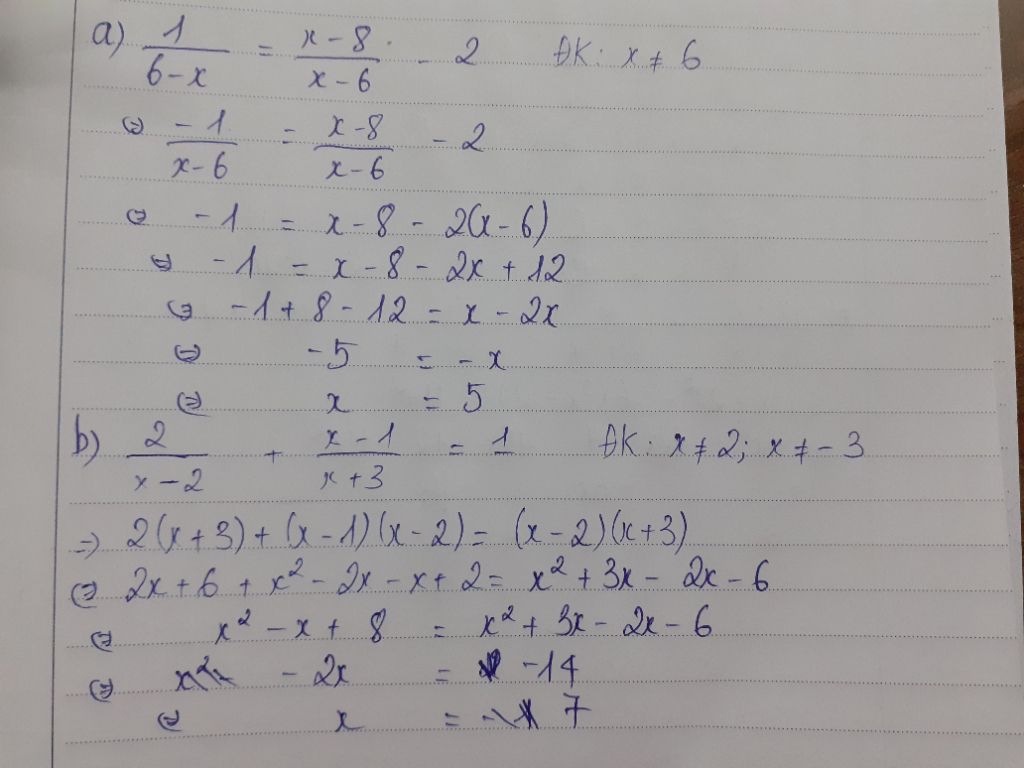 a) 1/(6-x) = (x-8)/(x-6) - 2 ĐK: x ≠ 6
⇔ -1/(x-6) = (x-8)/(x-6) - 2
⇔ -1 = x-8 - 2(x-6)
⇔ -1 = x-8-2x+12
⇔ -1+8-12 = x-2x
⇔ -5 = -x
⇔ x = 5
b) 2/(x-2) + (x-1)/(x+3) = 1 ĐK: x≠2; x≠-3
⇒ 2(x+3)+(x-1)(x-2)= (x-2)(x+3)
⇔ 2x+6+x²-2x-x+2= x²+3x-2x-6
⇔ x²-x+8 = x²+3x-2x-6
⇔ -2x = -14
⇔ x = 7